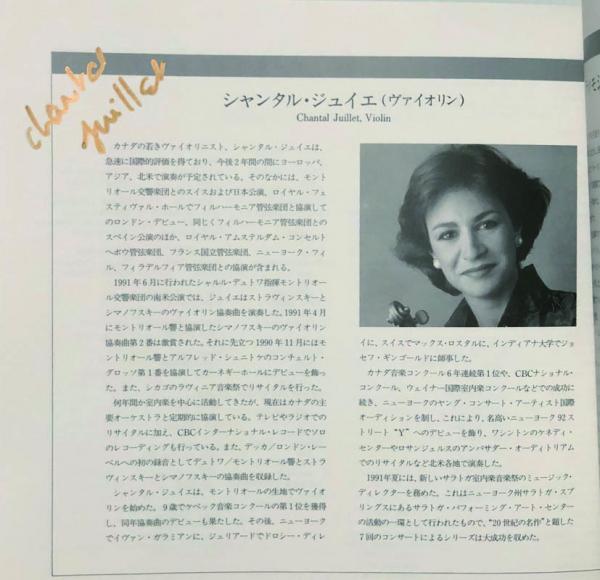 chantal
juillet
シャンタル・ジュイエ(ヴァイオリン)
Chantal Juillet, Violin
カナダの若きヴァイオリニスト、シャンタル・ジュイエは、
急速に国際的評価を得ており、今後2年間の間にヨーロッパ、
アジア、北米で演奏が予定されている。そのなかには、モント
リオール交響楽団とのスイスおよび日本公演、ロイヤル・フェ
スティヴァル・ホールでフィルハーモニア管弦楽団と協演して
のロンドン・デビュー、同じくフィルハーモニア管弦楽団との
スペイン公演のほか、ロイヤル・アムステルダム・コンセルト
ヘボウ管弦楽団、フランス国立管弦楽団、ニューヨーク・フィ
ル、フィラデルフィア管弦楽団との協演が含まれる。
1991年6月に行われたシャルル・デュトワ指揮モントリオー
ル交響楽団の南米公演では、ジュイエはストラヴィンスキーと
シマノフスキーのヴァイオリン協奏曲を演奏した。1991年4月
にモントリオール響と協演したシマノフスキーのヴァイオリン
協奏曲第2番は激賞された。それに先立つ1990年11月にはモ
ントリオール響とアルフレッド・シュニトケのコンチェルト・
グロッソ第1番を協演してカーネギーホールにデビューを飾っ
た。また、シカゴのラヴィニア音楽祭でリサイタルを行った。
何年間か室内楽を中心に活動してきたが、現在はカナダの主
要オーケストラと定期的に協演している。テレビやラジオでの
リサイタルに加え、CBCインターナショナル・レコードでソロ
のレコーディングも行っている。また、デッカ/ロンドン・レー
ベルへの初の録音としてデュトワ/モントリオール響とストラ
ヴィンスキーとシマノフスキーの協奏曲を収録した。
シャンタル・ジュイエは、モントリオールの生地でヴァイオ
リンを始めた。9歳でケベック音楽コンクールの第1位を獲得
し、同年協奏曲のデビューも果たした。その後、ニューヨーク
でイヴァン・ガラミアンに、ジュリアードでドロシー・ディレ
イに、スイスでマックス・ロスタルに、インディアナ大学でジョ
セフ・ギンゴールドに師事した。
カナダ音楽コンクール6年連続第1位や、CBCナショナル・
コンクール、ウェイナー国際室内楽コンクールなどでの成功に
続き、ニューヨークのヤング・コンサート・アーティスト国際
オーディションを制し、これにより、名高いニューヨーク92ス
トリート“Y”へのデビューを飾り、ワシントンのケネディ・
センターやロサンジェルスのアンバサダー・オーディトリアム
でのリサイタルなど北米各地で演奏した。
1991年夏には、新しいサラトガ室内楽音楽祭のミュージック・
ディレクターを務めた。これはニューヨーク州サラトガ・スプ
リングスにあるサラトガ・パフォーミング・アート・センター
の活動の一環として行われたもので、“20世紀の名作”と題した
7回のコンサートによるシリーズは大成功を収めた。